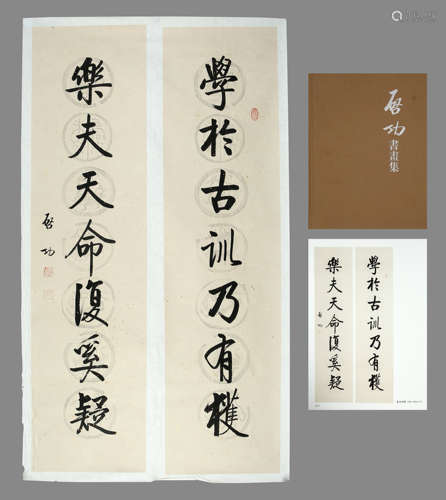 學於古訓乃有獲
樂夫天命復奚疑
啟功
啟功
書畫集
學於古訓乃有獲
樂夫天命復奚疑
啟功